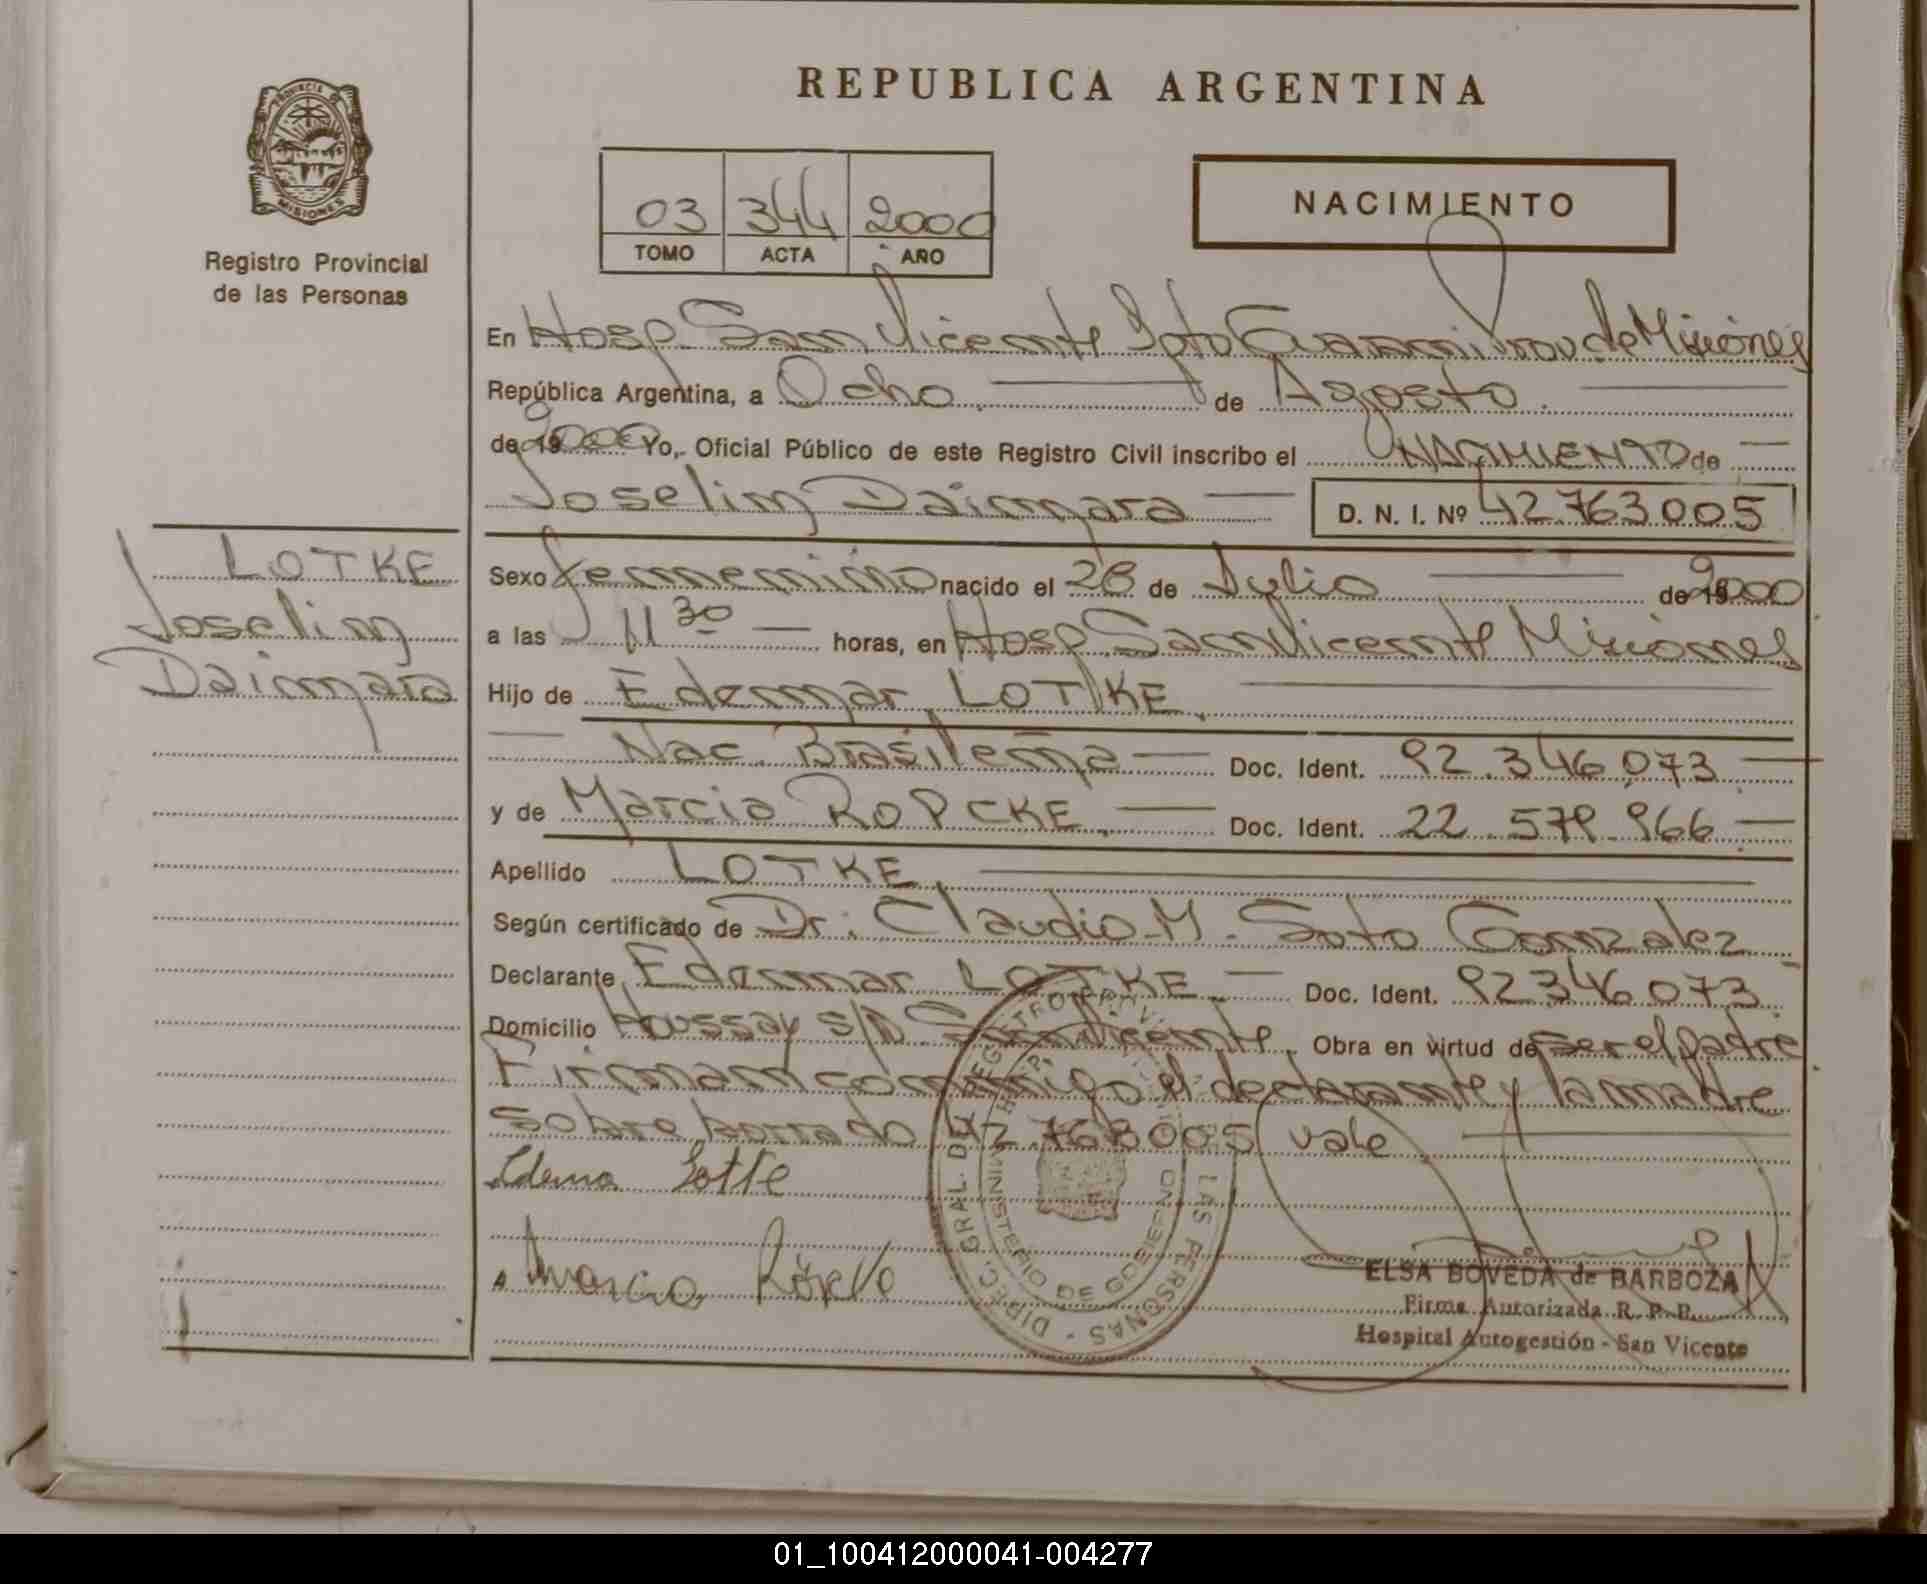 REPUBLICA ARGENTINA
PROVINCIA DE
MISIONES
Registro Provincial
de las Personas
03 344 2000
TOMO ACTA AÑO
NACIMIENTO
En Hosp. San Vicente Dpto Guarani Prov de Misiones
República Argentina, a Ocho de Agosto
de 19 2000 Yo, Oficial Público de este Registro Civil inscribo el NACIMIENTO de
Joselin Daimara D. N. I. Nº 42.763005
LOTKE
Joselin
Daimara
Sexo femenino nacido el 28 de Julio de 19 2000
a las 11 30 horas, en Hosp. San Vicente Misiones
Hijo de Edemar LOTKE
Nac. Brasileña Doc. Ident. 92.346.073
y de Marcia ROPCKE Doc. Ident. 22.579.966
Apellido LOTKE
Según certificado de Dr. Claudio M. Soto Gonzalez
Declarante Edemar LOTKE Doc. Ident. 92346073
Domicilio Houssay s/n San Vicente Obra en virtud de ser el padre
Firman conmigo el declarante y la madre
sobre borrado 42.763005 vale
Marcia
DIREC. GRAL. DEL REGISTRO PROVINCIAL DE LAS PERSONAS
MINISTERIO DE GOBIERNO
ELSA BOVEDA de BARBOZA
Firma Autorizada R. P. P.
Hospital Autogestión - San Vicente
01_100412000041-004277